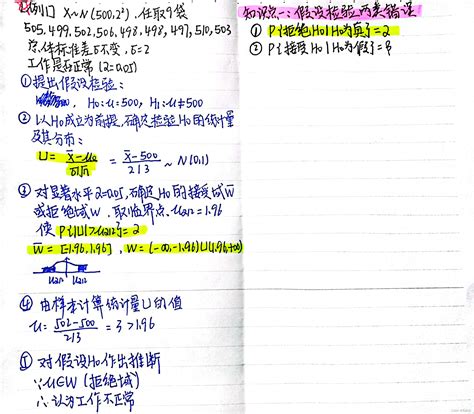 [例1] X~N(500,2²),任取9袋
505,499,502,506,498,498,497,510,503
总体标准差σ不变,σ=2
工作是否正常(α=0.05)
① 提出假设检验:
H₀:μ=500, H₁:μ≠500
② 以H₀成立为前提,确定检验H₀的统计量
及其分布:
U = (X̄-μ₀)/(σ/√n) = (X̄-500)/(2/3) ~ N(0,1)
③ 对显著水平α=0.05,确定H₀的接受域W̄
或拒绝域W,取临界点 μα/2=1.96
使 P{|U|>μα/2}=α
W̄=[-1.96,1.96], W=(-∞,-1.96)∪(1.96,+∞)
μα/2 μα/2
④ 由样本计算统计量U的值
u = (502-500)/(2/3) = 3 >1.96
⑤ 对假设H₀作出推断
∵u∈W (拒绝域)
∴认为工作不正常
知识点一:假设检验两类错误
① P{拒绝H₀|H₀为真}=α
② P{接受H₀|H₀为假}=β